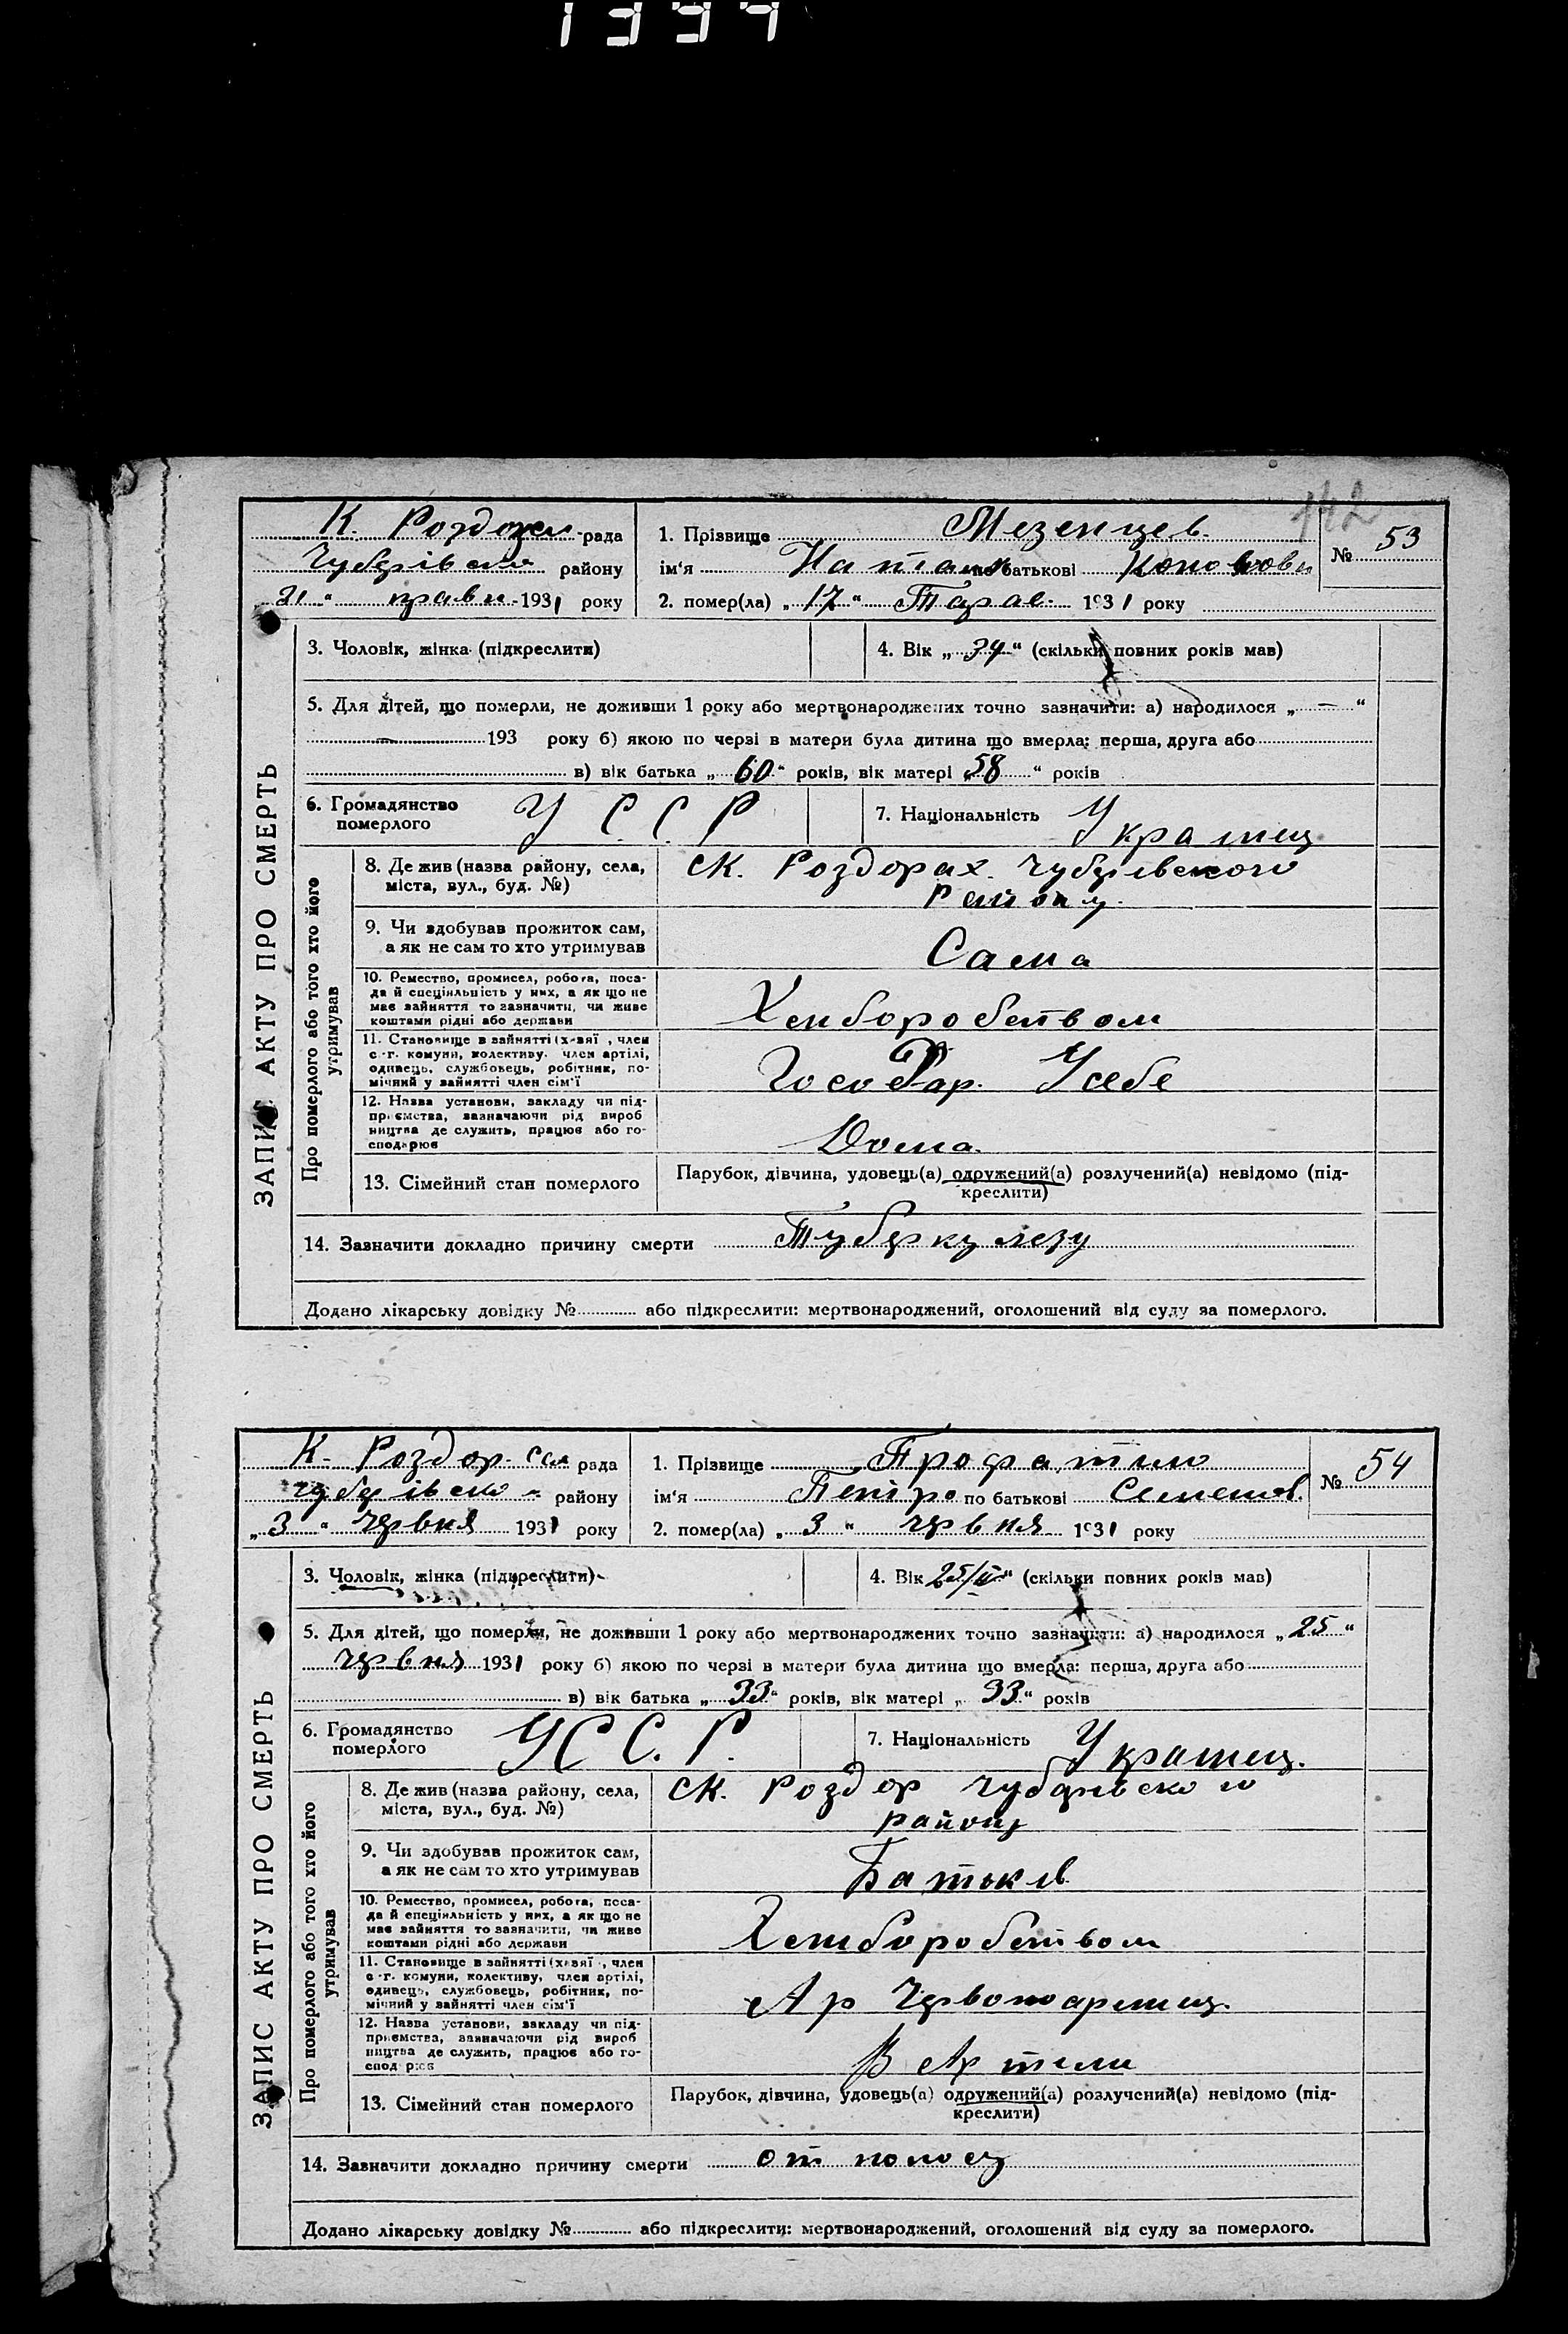 142
К. Роздори рада
Чубарівсько району
"21" травн 1931 року
1. Прізвище Мезенцев
№ 53
ім'я Наталк по батькові
2. помер(ла) „17" Трав 1931 року
ЗАПИС АКТУ ПРО СМЕРТЬ
3. Чоловік, жінка (підкреслити)
4. Вік „34" (скільки повних років мав)
5. Для дітей, що померли, не доживши 1 року або мертвонароджених точно зазначити: а) народилося „ — "
— 193 року б) якою по черзі в матери була дитина що вмерла: перша, друга або
в) вік батька „60" років, вік матері „58" років
6. Громадянство померлого У С. С. Р
7. Національність Украинц
Про померлого або того хто його утримував
8. Де жив (назва району, села, міста, вул., буд. №)
СК. Роздорах. Чубарівского
Району.
9. Чи здобував прожиток сам, а як не сам то хто утримував
Сама
10. Ремество, промисел, робота, поса-
да й спеціяльність у них, а як що не
має зайняття то зазначити, чи живе
коштами рідні або держави
Хлиборобством
11. Становище в зайнятті (хазяї , член
с.-г. комуни, колективу. член артілі,
одинець, службовець, робітник, по-
мічний у зайнятті член сім'ї
Госо Дар. У себе
12. Назва установи, закладу чи під-
приємства, зазначаючи рід вироб
ництва де служить, працює або го-
сподарює
Дома.
13. Сімейний стан померлого
Парубок, дівчина, удовець(а) одружений(а) розлучений(а) невідомо (під-
креслити)
14. Зазначити докладно причину смерти Туберкулезу
Додано лікарську довідку № або підкреслити: мертвонароджений, оголошений від суду за померлого.
К. Роздор. Сел рада
Чубарівсько району
„3" Червня 1931 року
1. Прізвище
№ 54
ім'я Петро по батькові Семенов.
2. помер(ла) „3" червня 1931 року
ЗАПИС АКТУ ПРО СМЕРТЬ
3. Чоловік, жінка (підкреслити)
4. Вік 25/ІІ" (скільки повних років мав)
5. Для дітей, що померли, не доживши 1 року або мертвонароджених точно зазначити: а) народилося „25"
Червня 1931 року б) якою по черзі в матери була дитина що вмерла: перша, друга або
в) вік батька „33" років, вік матері „33" років
6. Громадянство померлого УС С. Р.
7. Національність Украинц.
Про померлого або того хто його утримував
8. Де жив (назва району, села, міста, вул., буд. №)
СК. Роздор Чубарівского
району
9. Чи здобував прожиток сам, а як не сам то хто утримував
Батьків
10. Ремество, промисел, робота, поса-
да й спеціяльність у них, а як що не
має зайняття то зазначити, чи живе
коштами рідні або держави
Хлиборобством
11. Становище в зайнятті (хазяї , член
с.-г. комуни, колективу, член артілі,
одинець, службовець, робітник, по-
мічний у зайнятті член сім'ї
Ар Червоноармиц.
12. Назва установи, закладу чи під-
приємства, зазначаючи рід вироб
ництва де служить, працює або го-
сподарює
В Артели
13. Сімейний стан померлого
Парубок, дівчина, удовець(а) одружений(а) розлучений(а) невідомо (під-
креслити)
14. Зазначити докладно причину смерти от
Додано лікарську довідку № або підкреслити: мертвонароджений, оголошений від суду за померлого.